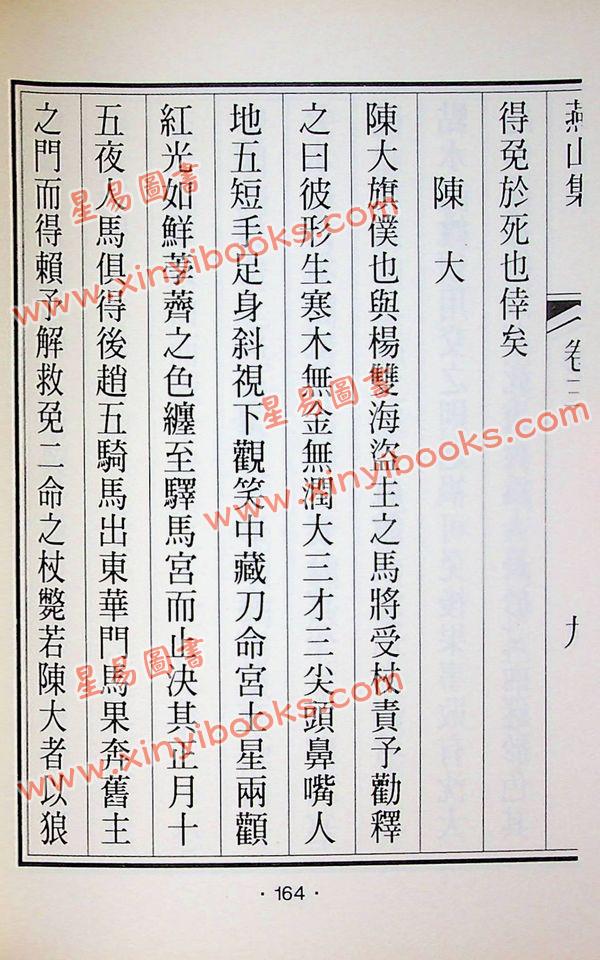 燕山集
卷二
九
得免於死也倖矣
陳大
陳大旗僕也與楊雙海盜主之馬將受杖責予勸釋
之曰彼形生寒木無金無潤大三才三尖頭鼻嘴人
地五短手足身斜視下觀笑中藏刀命宮土星兩顴
紅光如鮮荸薺之色纏至驛馬宮而止決其正月十
五夜人馬俱得後趙五騎馬出東華門馬果奔舊主
之門而得賴予解救免二命之杖斃若陳大者以狼
· 164 ·
星易圖書
www.xinyibooks.com
星易圖書
www.xinyibooks.com
星易圖書
www.xinyibooks.com